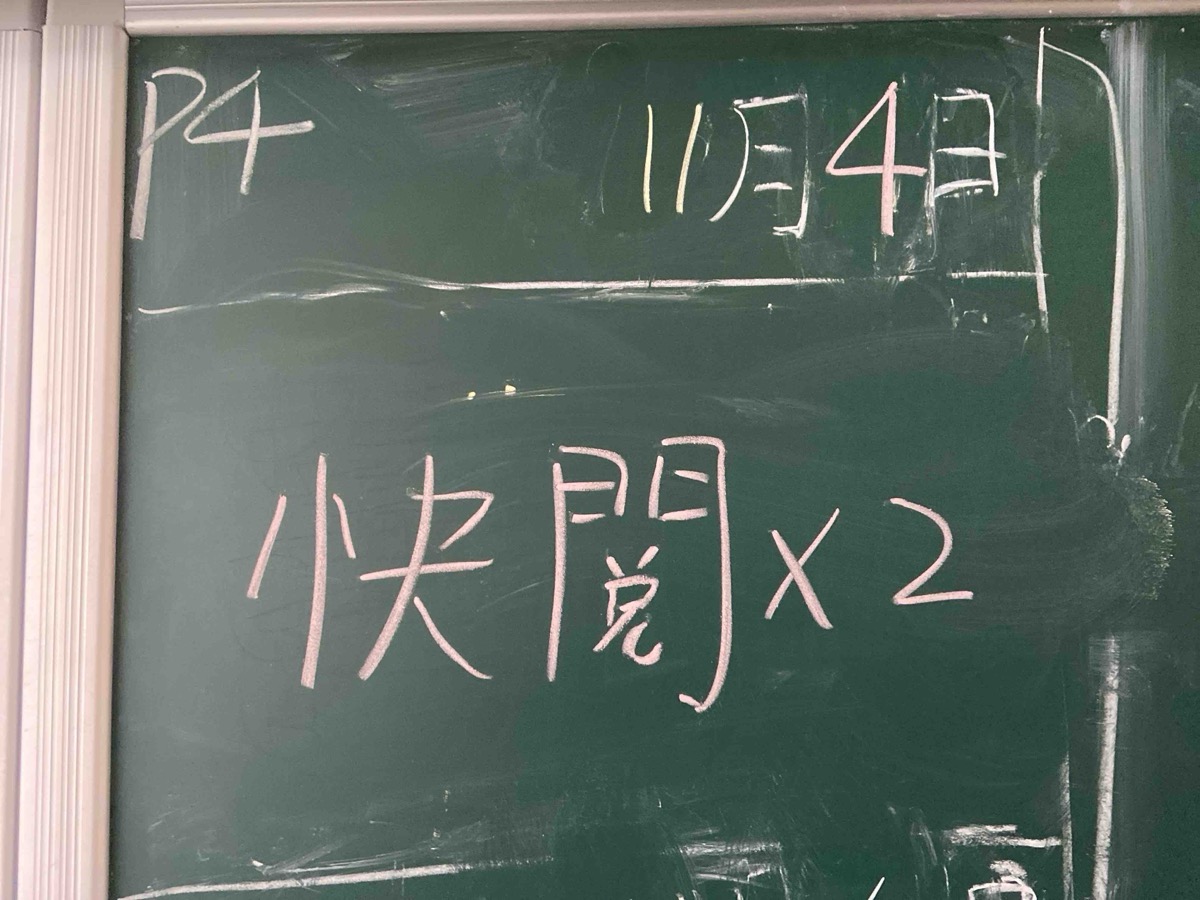 P4 11月4日
快閱×2